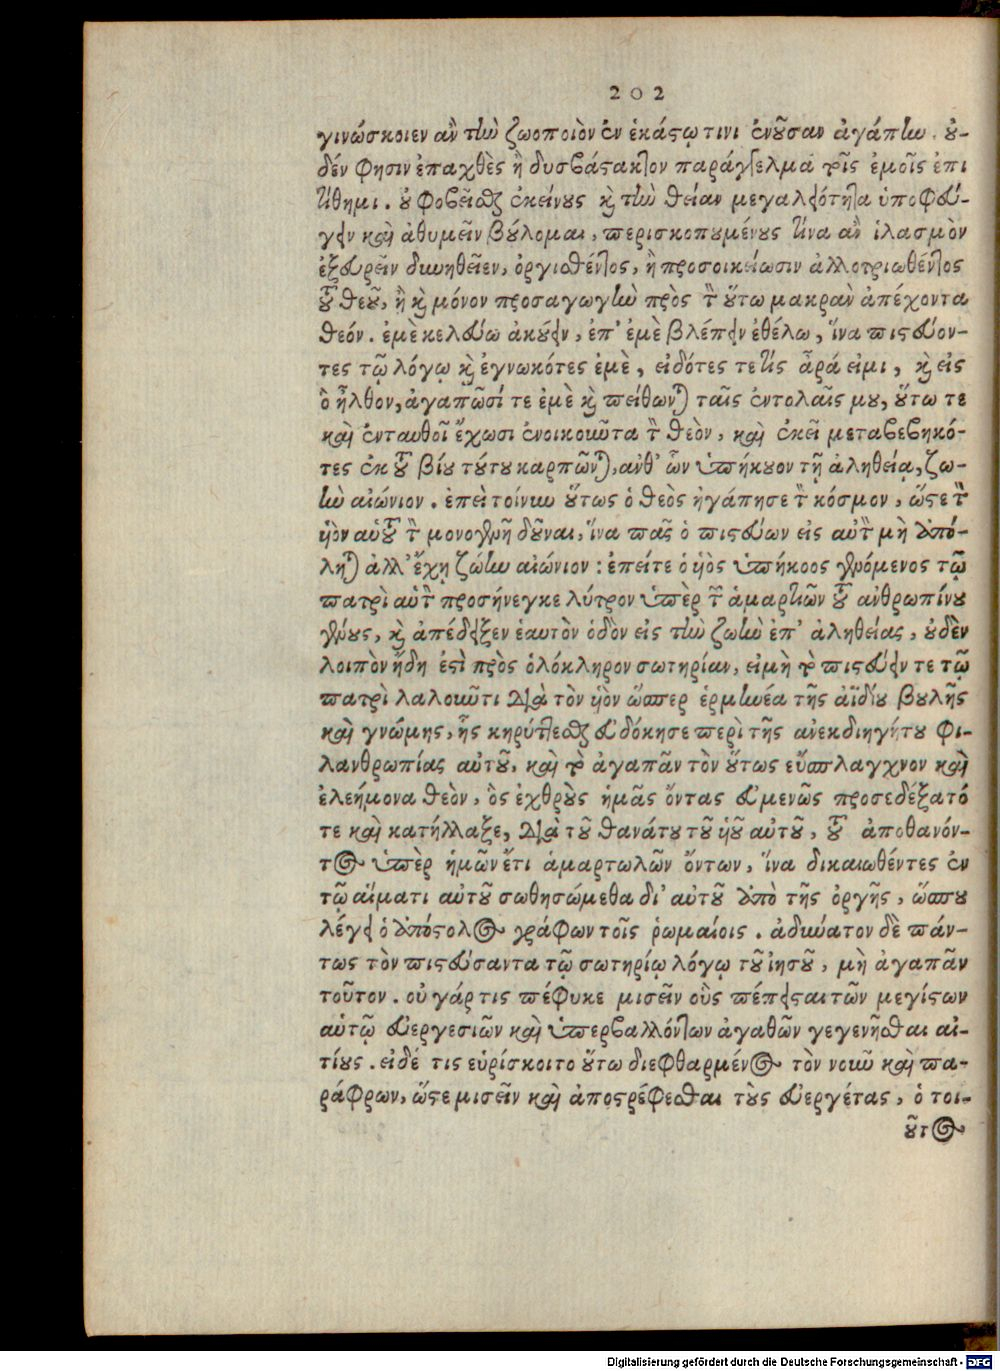 202
γινώσκοιεν ἂν τὴν ζωοποιὸν ἐν ἑκάστῳ τινι ἐνοῦσαν ἀγάπην. οὐ-
δέν φησιν ἐπαχθὲς ἢ δυσβάστακτον παράγγελμα τοῖς ἐμοῖς ἐπι
τίθημι. οὐ φοβεῖσθαι ἐκείνους καὶ τὴν θείαν μεγαλειότητα ὑποφεύ-
γειν καὶ ἀθυμεῖν βούλομαι, περισκοπουμένους τίνα ἂν ἱλασμὸν
ἐξευρεῖν δυνηθεῖεν, ὀργισθέντος, ἢ προσοικείωσιν ἀλλοτριωθέντος
τοῦ θεοῦ, ἢ καὶ μόνον προσαγωγὴν πρὸς τὸν οὕτω μακρὰν ἀπέχοντα
θεόν. ἐμὲ κελεύω ἀκούειν, ἐπ' ἐμὲ βλέπειν ἐθέλω, ἵνα πιστεύον-
τες τῷ λόγῳ καὶ ἐγνωκότες ἐμὲ, εἰδότες τε τίς ἆρά εἰμι, καὶ εἰς
ὃ ἦλθον, ἀγαπῶσί τε ἐμὲ καὶ πείθωνται ταῖς ἐντολαῖς μου, οὕτω τε
καὶ ἐνταυθοῖ ἔχωσι ἐνοικοῦντα τὸν θεὸν, καὶ ἐκεῖ μεταβεβηκό-
τες ἐκ τοῦ βίου τούτου καρπῶνται, ἀνθ' ὧν ὑπήκουον τῇ ἀληθείᾳ, ζω-
ὴν αἰώνιον. ἐπεὶ τοίνυν οὕτως ὁ θεὸς ἠγάπησε τὸν κόσμον, ὥστε τὸν
υἱὸν αὑτοῦ τὸν μονογενῆ δοῦναι, ἵνα πᾶς ὁ πιστεύων εἰς αὐτὸν μὴ ἀπό-
ληται ἀλλ' ἔχῃ ζώην αἰώνιον: ἐπείτε ὁ υἱὸς ὑπήκοος γενόμενος τῷ
πατρὶ αὑτὸν προσήνεγκε λύτρον ὑπὲρ τῶν ἁμαρτιῶν τοῦ ἀνθρωπίνου
γένους, καὶ ἀπέδειξεν ἑαυτὸν ὁδὸν εἰς τὴν ζωὴν ἐπ' ἀληθείας, οὐδὲν
λοιπὸν ἤδη ἐστὶ πρὸς ὁλόκληρον σωτηρίαν, εἰμὴ τὸ πιστεύειν τε τῷ
πατρὶ λαλοῦντι διὰ τὸν υἱὸν ὥσπερ ἑρμηνέα τῆς ἀϊδίου βουλῆς
καὶ γνώμης, ἧς κηρύττεσθαι εὐδόκησε περὶ τῆς ἀνεκδιηγήτου φι-
λανθρωπίας αὐτοῦ, καὶ τὸ ἀγαπᾶν τὸν οὕτως εὔσπλαγχνον καὶ
ἐλεήμονα θεὸν, ὃς ἐχθροὺς ἡμᾶς ὄντας εὐμενῶς προσεδέξατό
τε καὶ κατήλλαξε, διὰ τοῦ θανάτου τοῦ υἱοῦ αὐτοῦ, τοῦ ἀποθανόν-
τος ὑπὲρ ἡμῶν ἔτι ἁμαρτωλῶν ὄντων, ἵνα δικαιωθέντες ἐν
τῷ αἵματι αὐτοῦ σωθησώμεθα δι' αὐτοῦ ἀπὸ τῆς ὀργῆς, ὥσπου
λέγει ὁ ἀπόστολος γράφων τοῖς ῥωμαίοις. ἀδύνατον δὲ πάν-
τως τὸν πιστεύσαντα τῷ σωτηρίῳ λόγῳ τοῦ ἰησοῦ, μὴ ἀγαπᾶν
τοῦτον. οὐ γάρ τις πέφυκε μισεῖν οὓς πέπεισται τῶν μεγίστων
αὑτῷ εὐεργεσιῶν καὶ ὑπερβαλλόντων ἀγαθῶν γεγενῆσθαι αἰ-
τίους. εἰδέ τις εὑρίσκοιτο οὕτω διεφθαρμένος τὸν νοῦν καὶ πα-
ράφρων, ὥστε μισεῖν καὶ ἀποστρέφεσθαι τοὺς εὐεργέτας, ὁ τοι-
οῦτος
Digitalisierung gefördert durch die Deutsche Forschungsgemeinschaft - DFG